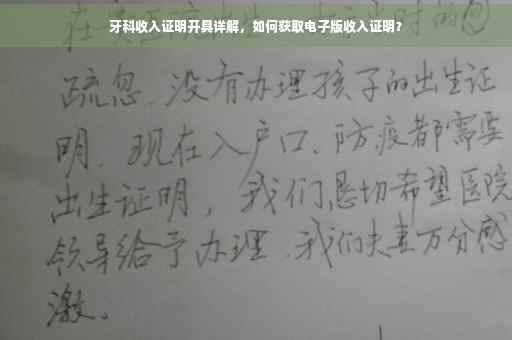 牙科收入证明开具详解，如何获取电子版收入证明？
疏忽、没有办理孩子的出生证
明、现在入户口、防疫都需要
出生证明，我们恳切希望医院
领导给予办理、我们夫妻万分感
激。